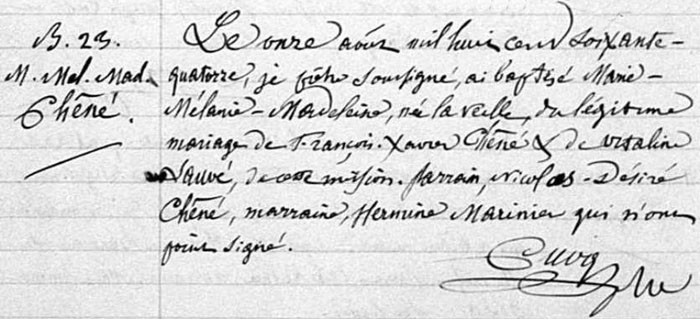 B. 23.
M. Mel. Mad.
Chéné.
Le onze août mil huit cent soixante-
quatorze, je prêtre soussigné, ai baptisé Marie-
Mélanie-Madeleine, née la veille, du légitime
mariage de François-Xavier Chéné & de Vitaline
Sauvé, de cette mission. Parrain, Nicolas-Désiré
Chéné, marraine, Hermine Marinier qui n'ont
point signé.
Cuoq
ptre